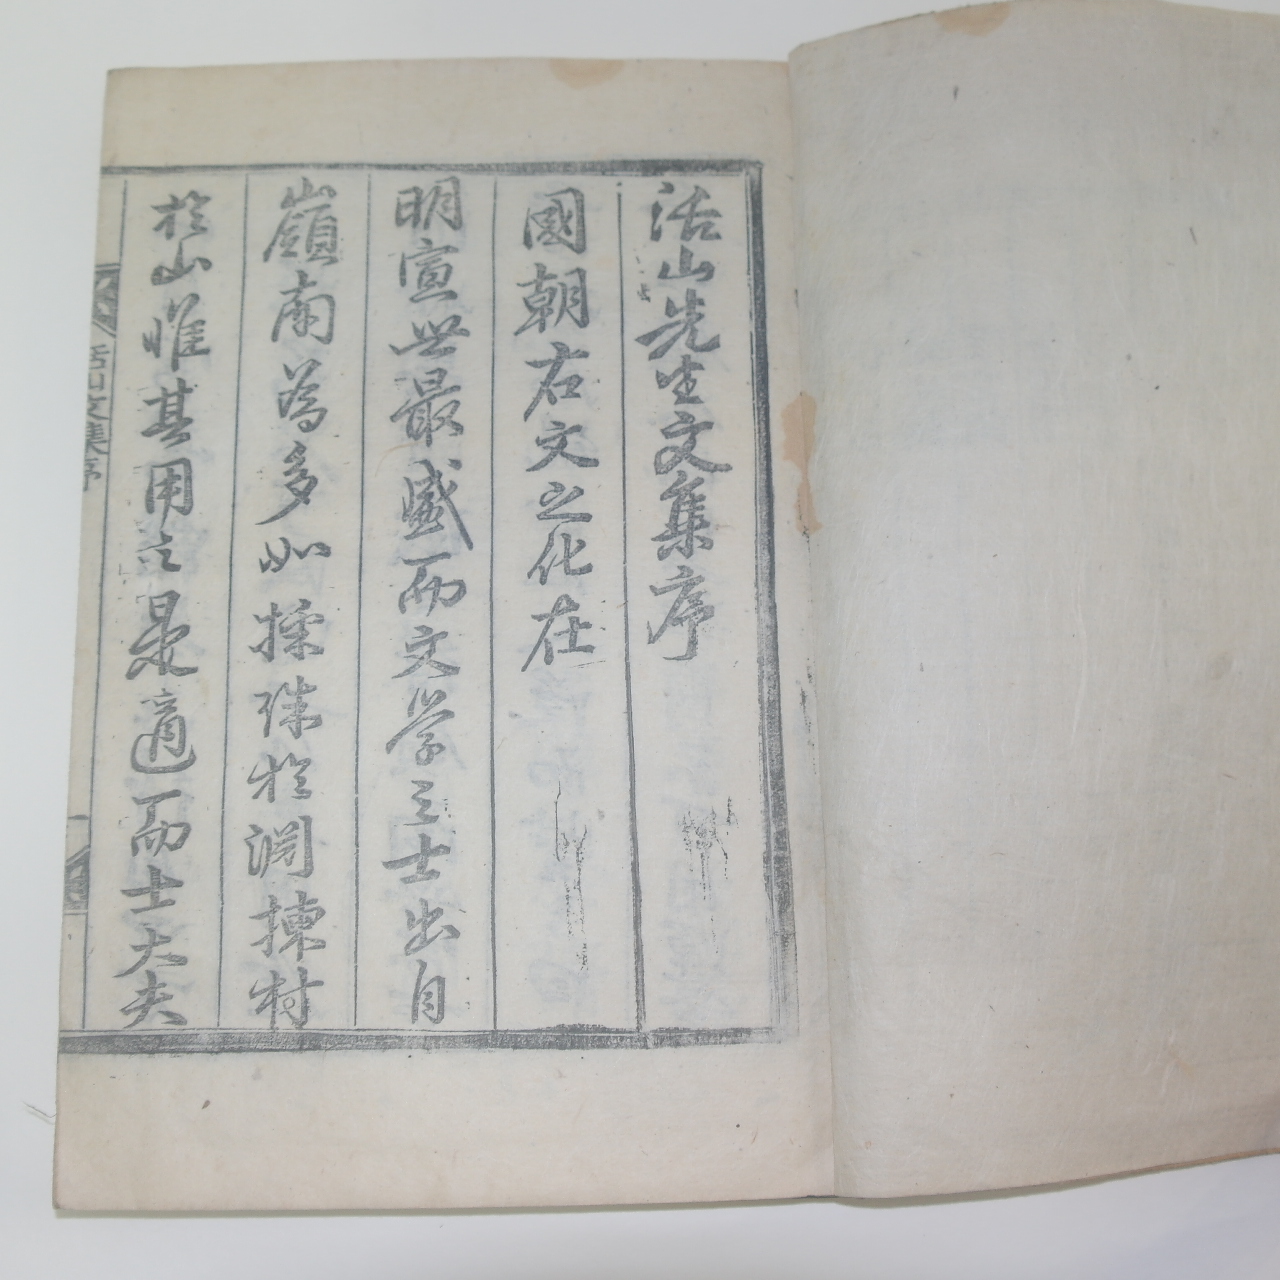 活山先生文集序
國朝右文之化在
明宣世最盛而文学之士出自
嶺南為多如採珠於淵揀材
於山惟其用之是適而士大夫
活山文集序
一